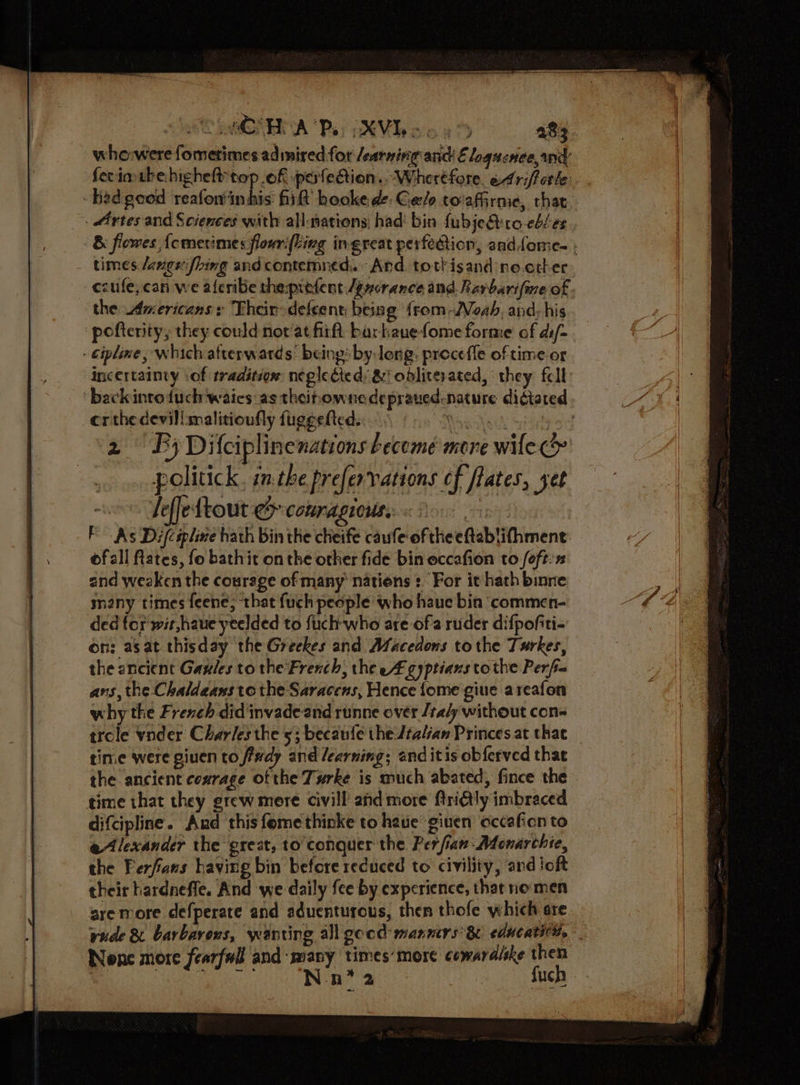 CHAP. XVI. 283
who were sometimes admired for learning and Eloquence, and
set in the highest top of perfection. Wherefore Aristotle
had good reason in his first booke de Cælo to affirme, that
Artes and Sciences with all nations had bin subject to ebbes
& flowes, sometimes flourishing in great perfection, and some-
times languishing and contemned. And to this and no other
cause, can we ascribe the present Ignorance and Barbarisme of
the Americans: Their descent being from Noah, and his
posterity, they could not at first but haue some forme of dis-
cipline, which afterwards being by long processe of time or
incertainty of tradition neglected & obliterated, they fell
back into such waies as their owne depraued nature dictated
or the devill malitiously suggested.
2 By Discipline nations become more wise &
politick in the preservations of states, yet
lesse stout & couragious.
As Discipline hath bin the cheife cause of the establishment
of all states, so hath it on the other side bin occasion to soften
and weaken the courage of many nations: For it hath binne
many times seene, that such people who haue bin commen-
ded for wit, haue yeelded to such who are of a ruder dispositi-
on: as at this day the Greekes and Macedons to the Turkes,
the ancient Gaules to the French, the Ægyptians to the Persi-
ans, the Chaldæans to the Saracens, Hence some giue a reason
why the French did invade and runne over Italy without con-
trole vnder Charles the 5; because the Italian Princes at that
time were giuen to study and learning; and it is observed that
the ancient courage of the Turke is much abated, since the
time that they grew more civill and more strictly imbraced
discipline. And this some thinke to haue giuen occasion to
Alexander the great, to conquer the Persian Monarchie,
the Persians having bin before reduced to civility, and lost
their hardnesse. And we daily see by experience, that no men
are more desperate and aduenturous, then those which are
rude & barbarous, wanting all good manners & education,
None more fearfull and many times more cowardlike then
Nn* 2 such